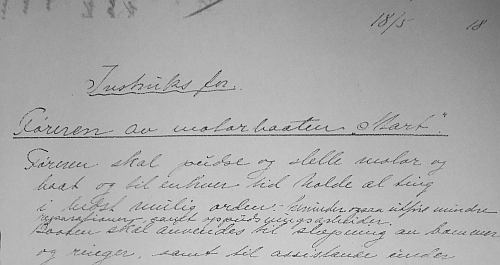 18/5 18
Instruks for
Føreren av motorbaaten „Mart".
Føreren skal pudse og stelle motor og
baat og til enhver tid holde al ting
i bedst mulig orden. herunder ogsaa utføre mindre
reparationer samt oppudsningsarbeider.
Baaten skal anvendes til slepning av bommer
og ringer, samt til assistance under